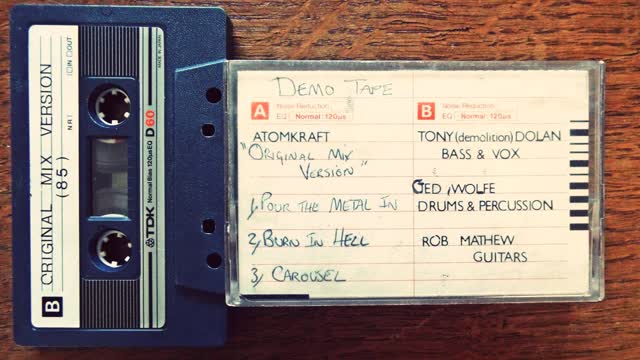 ORIGINAL MIX VERSION
(85)
B
NR
IN OUT
TDK Normal Bias 120μs EQ D60
MADE IN JAPAN
DEMO TAPE
A Noise Reduction
EQ Normal: 120μs
ATOMKRAFT
"ORIGINAL MIX
VERSION"
1, POUR THE METAL IN
2, BURN IN HELL
3, CAROUSEL
B Noise Reduction
EQ Normal: 120μs
TONY (demolition) DOLAN
BASS & VOX
GED WOLFE
DRUMS & PERCUSSION
ROB MATHEW
GUITARS